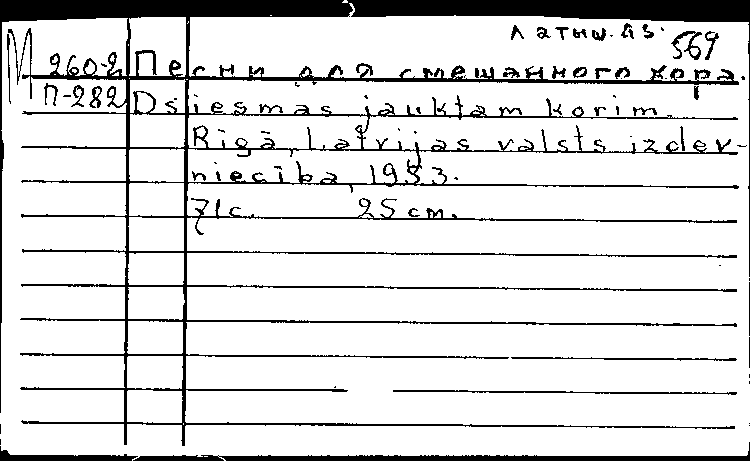 Латыш. яз. 569
М 260-2 Песни для смешанного хора.
П-282 Dsiesmas jauktam korim.
Rīgā, Latvijas valsts izdev-
niecība, 1953.
71 с. 25 см.